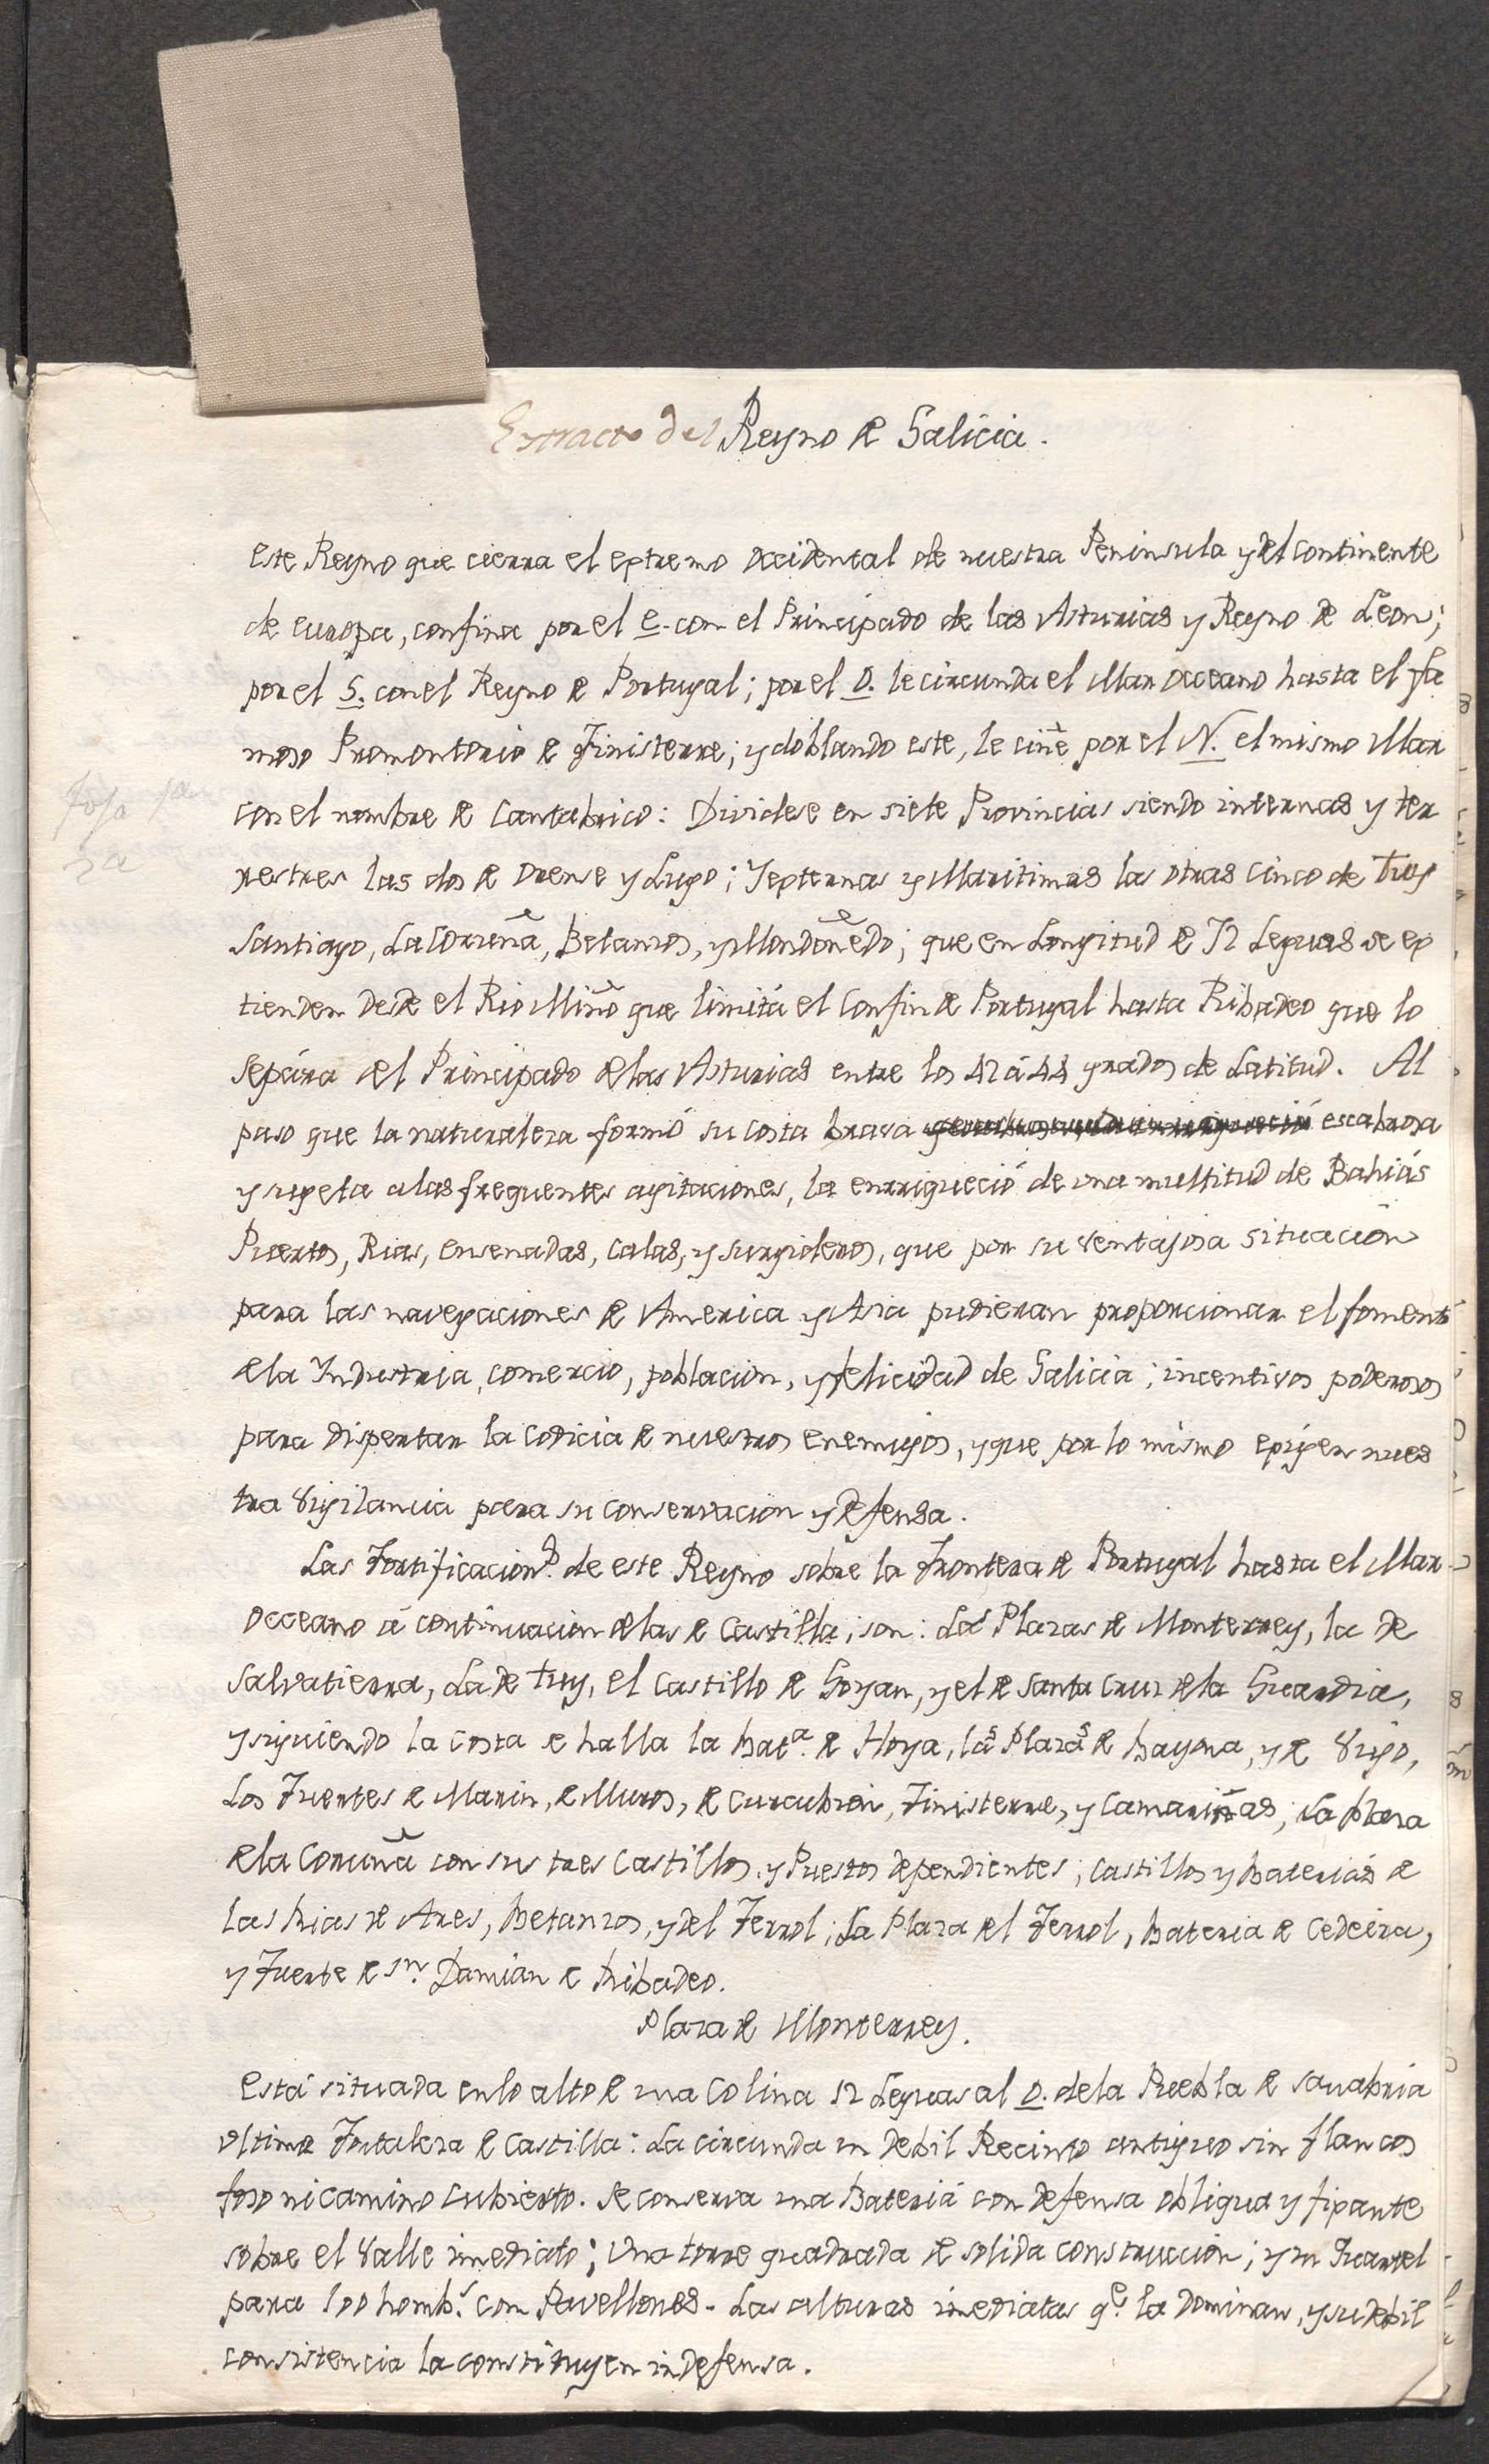 Extracto del Reyno de Galicia.
Este Reyno que cierra el extremo occidental de nuestra Peninsula y del continente
de europa, confina por el e. con el Principado de las Asturias y Reyno de Leon;
por el S. con el Reyno de Portugal; por el O. le circunda el Mar occeano hasta el fa
moso Promontorio de Finisterre; y doblando este, le ciñe por el N. el mismo Mar
con el nombre de Cantabrico: Dividese en siete Provincias siendo internas y ter
restres las dos de Orense y Lugo; Yexternas y Maritimas las otras cinco de Tuy
Santiago, La Coruña, Betanzos, y Mondoñedo; que en Longitud de 72 Leguas se ex
tienden desde el Rio Miño que limitá el Confin de Portugal hasta Ribadeo que lo
Sepára del Principado de las Asturias entre los 42 á 44 grados de Latitud. Al
paso que la naturaleza formó su costa brava escabrosa
y sugeta a las frequentes agitaciones, la enrriqueció de una multitud de Bahiás
Puertos, Rias, ensenadas, calas, y surgideros, que por su ventajosa situacion
para las navegaciones de America y Asia pudieran proporcionar el fomento
de la Yndustria, comercio, poblacion, y felicidad de Galicia; incentivos poderosos
para dispertar la codicia de nuestros enemigos, y que por lo mismo exigen nues
tra vigilancia para su conservacion y defensa.
Las Fortificacion.s de este Reyno sobre la Frontera de Portugal hasta el Mar
occeano á continuacion de las de Castilla, son: Las Plazas de Monterrey, la de
Salvatierra, La de Tuy, el Castillo de Goyan, y el de Santa Cruz de la Guardia,
y siguiendo la costa se halla la bat.a de Hoya, las Plazas de bayona, y de Vigo,
Los Fuertes de Marin, de Muros, de Curcubion, Finisterre, y Camariñas; La plaza
de la Coruña con sus tres Castillos, y Puestos dependientes; castillos y bateriás de
las rias de Ares, betanzos, y del Ferrol; La Plaza del Ferrol, bateria de Cedeira,
y Fuerte de Sn. Damian de ribadeo.
Plaza de Monterrey.
Está situada en lo alto de una colina 12 Leguas al O. de la Puebla de sanabria
ultima Fortaleza de Castilla: La circunda un debil Recinto antiguo sin flancos
foso ni camino cubierto. Se conserva una Bateriá con defensa obliqua y fixante
sobre el Valle imediato; Una torre quadrada de solida construccion; y un Quartel
para 100 homb.s con Pavellones. Las alturas imediatas q.e la dominan, y su debil
consistencia la constituyen indefensa.